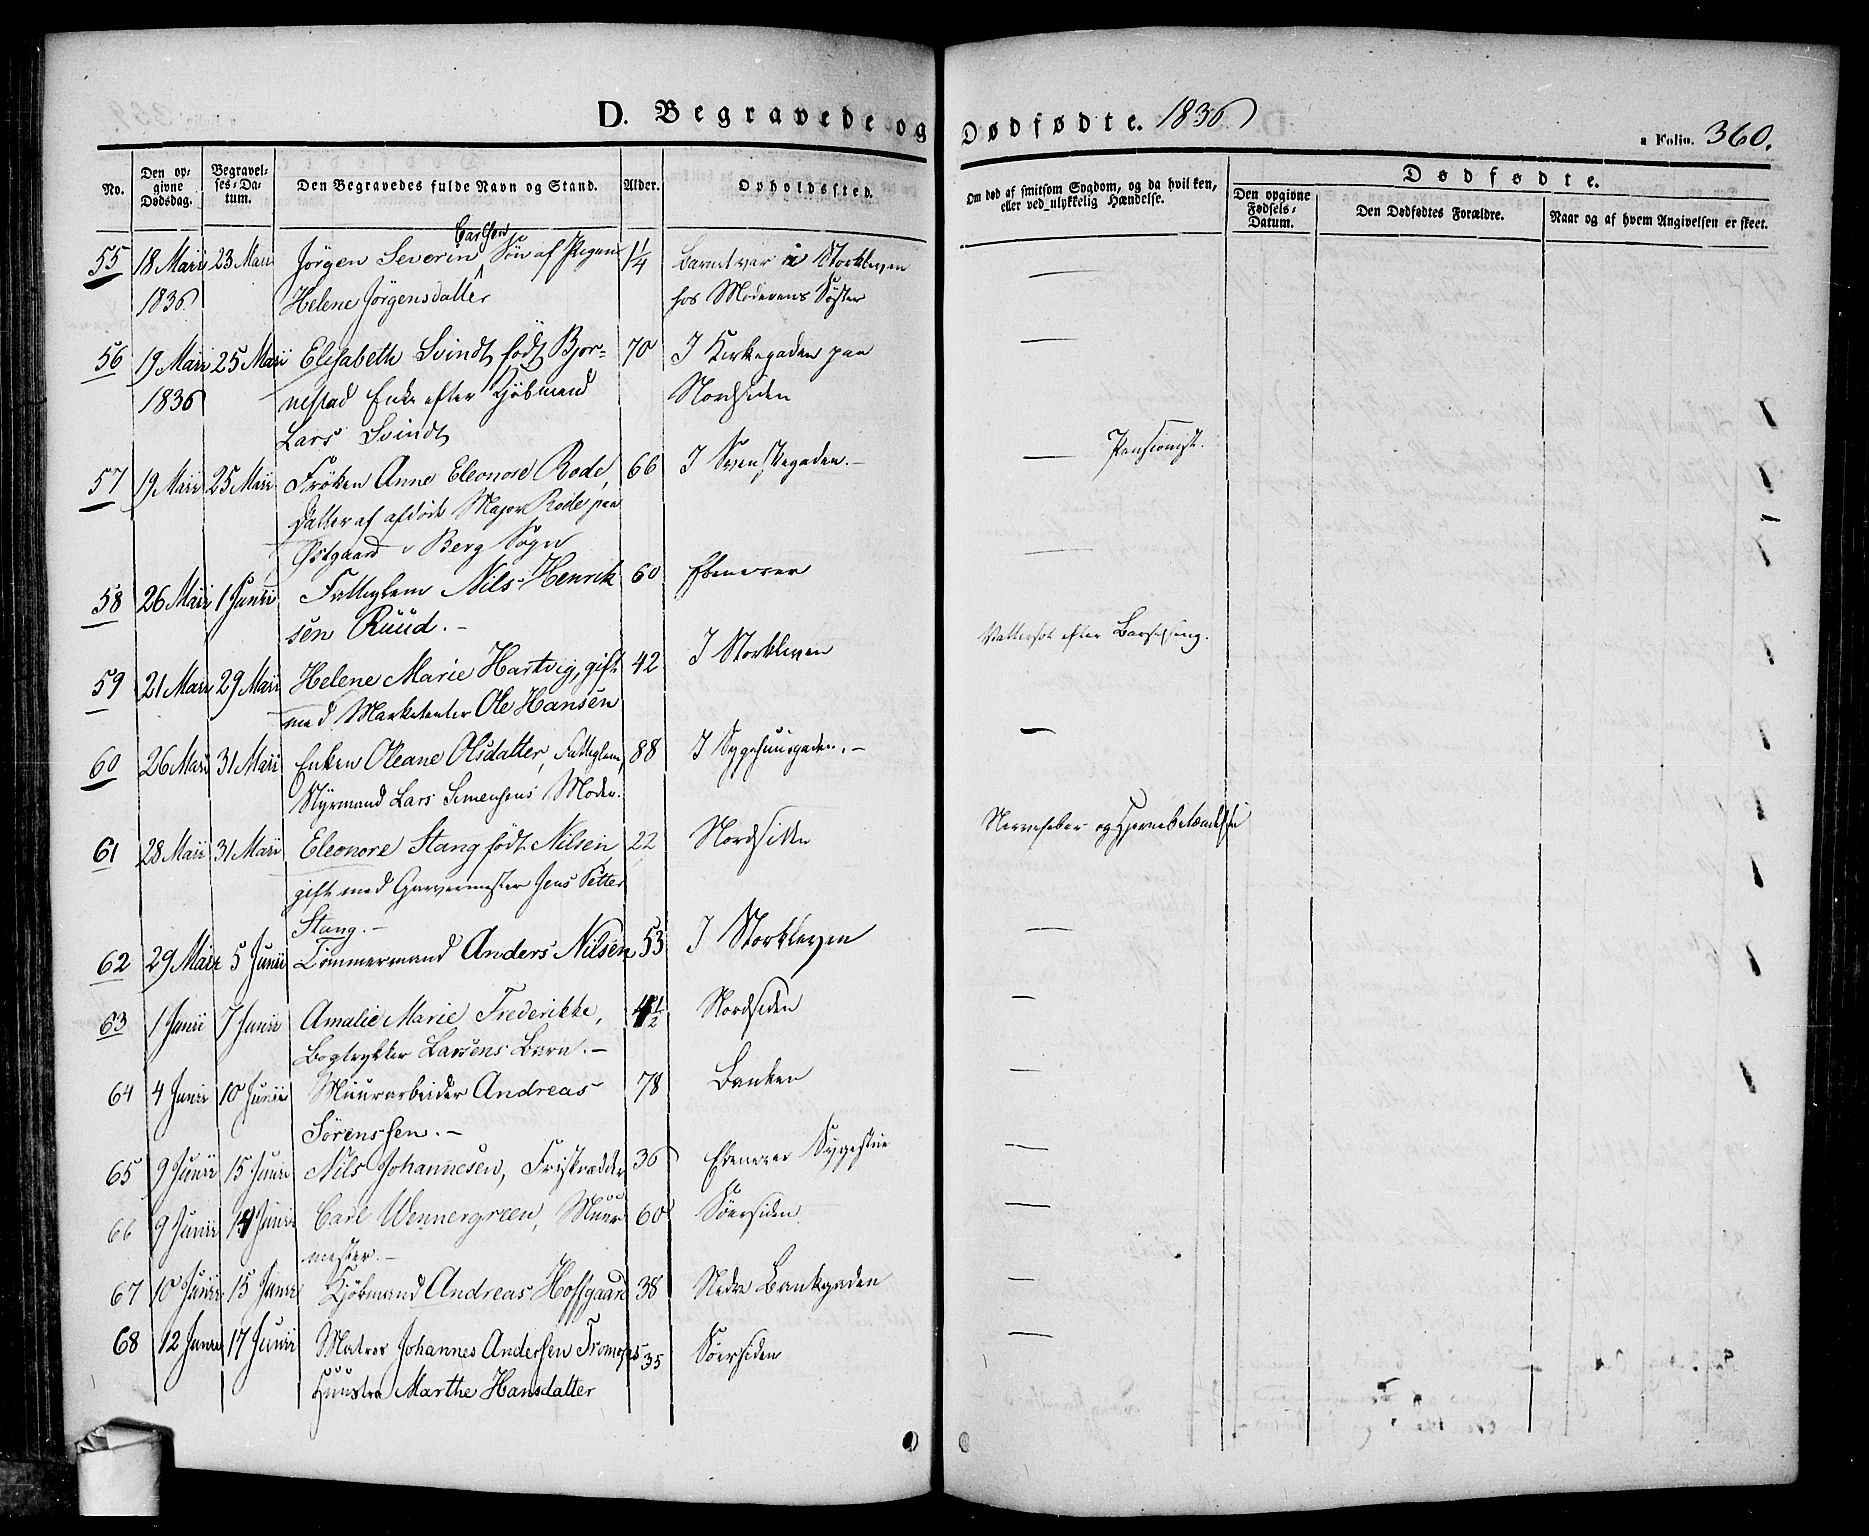 D. Begravede og Dødfødte. 1836
Folio. 360.
No.
Den opgivne Dødsdag.
Begravelses-Datum.
Den Begravedes fulde Navn og Stand.
Alder.
Opholdssted.
Om død af smitsom Sygdom, og da hvilken, eller ved ulykkelig Hændelse.
Dødfødte.
Den opgivne Fødsels-Datum.
Den Dødfødtes Forældre.
Naar og af hvem Angivelsen er skeet.
Carlsen
55 18 Maii 23 Maii Jørgen Severin Søn af Pigen 1 1/4 Barnet var i Storkleven —
1836 Helene Jørgensdatter hos Moderens Søster
56 19 Maii 25 Maii Elisabeth Svindt født Bjor- 70 I Kirkegaden paa —
1836 nestad Enke efter Kjöbmand Nordsiden
Lars Svindt
57 19 Maii 25 Maii Frøken Anne Eleonore Rode, 66 I Svenskegaden.— — Pensionist.
Datter af afdöde Major Rode paa
Østgaard i Berg Sogn
58 26 Maii 1 Junii Fatteglem Nils Henrik 60 Ebenezer —
sen Ruud.—
59 21 Maii 29 Maii Helene Marie Hartvig, gift 42 I Storkleven Vattersot efter Barselseng.
med Marketenter Ole Hansen
60 26 Maii 31 Maii Enken Oleane Olsdatter, Fatteglem, 88 I Sygehuusgaden.— —
Styrmand Lars Simensens Moder.
61 28 Maii 31 Maii Eleonore Stang født Nilsen, 22 Nordsiden Nervefeber og Hjernebetændelse
gift med Garvermester Jens Petter
Stang.—
62 29 Maii 5 Junii Tömmermand Anders Nilsen 53 I Storkleven —
63 1 Junii 7 Junii Amalie Marie Frederikke, 4 1/2 Nordsiden —
Bogtrykker Larsens Barn.—
64 4 Junii 10 Junii Muurarbeider Andreas 78 Banken —
Sörenssen.—
65 9 Junii 15 Junii Nils Johannesen, 36 Ebenezer Sygestue —
66 9 Junii 14 Junii Carl Wennergreen, Muur 60 Söersiden —
mester.—
67 10 Junii 15 Junii Kjöbmand Andreas Hoffgaard 38 Nedre Bankgaden —
68 12 Junii 17 Junii Matros Johannes Andersen Tromøes 35 Söersiden —
Huustru Marthe Hansdatter